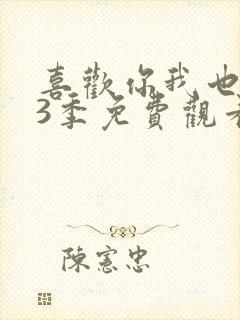 喜歡你我也
3季免費觀看
陳憲忠